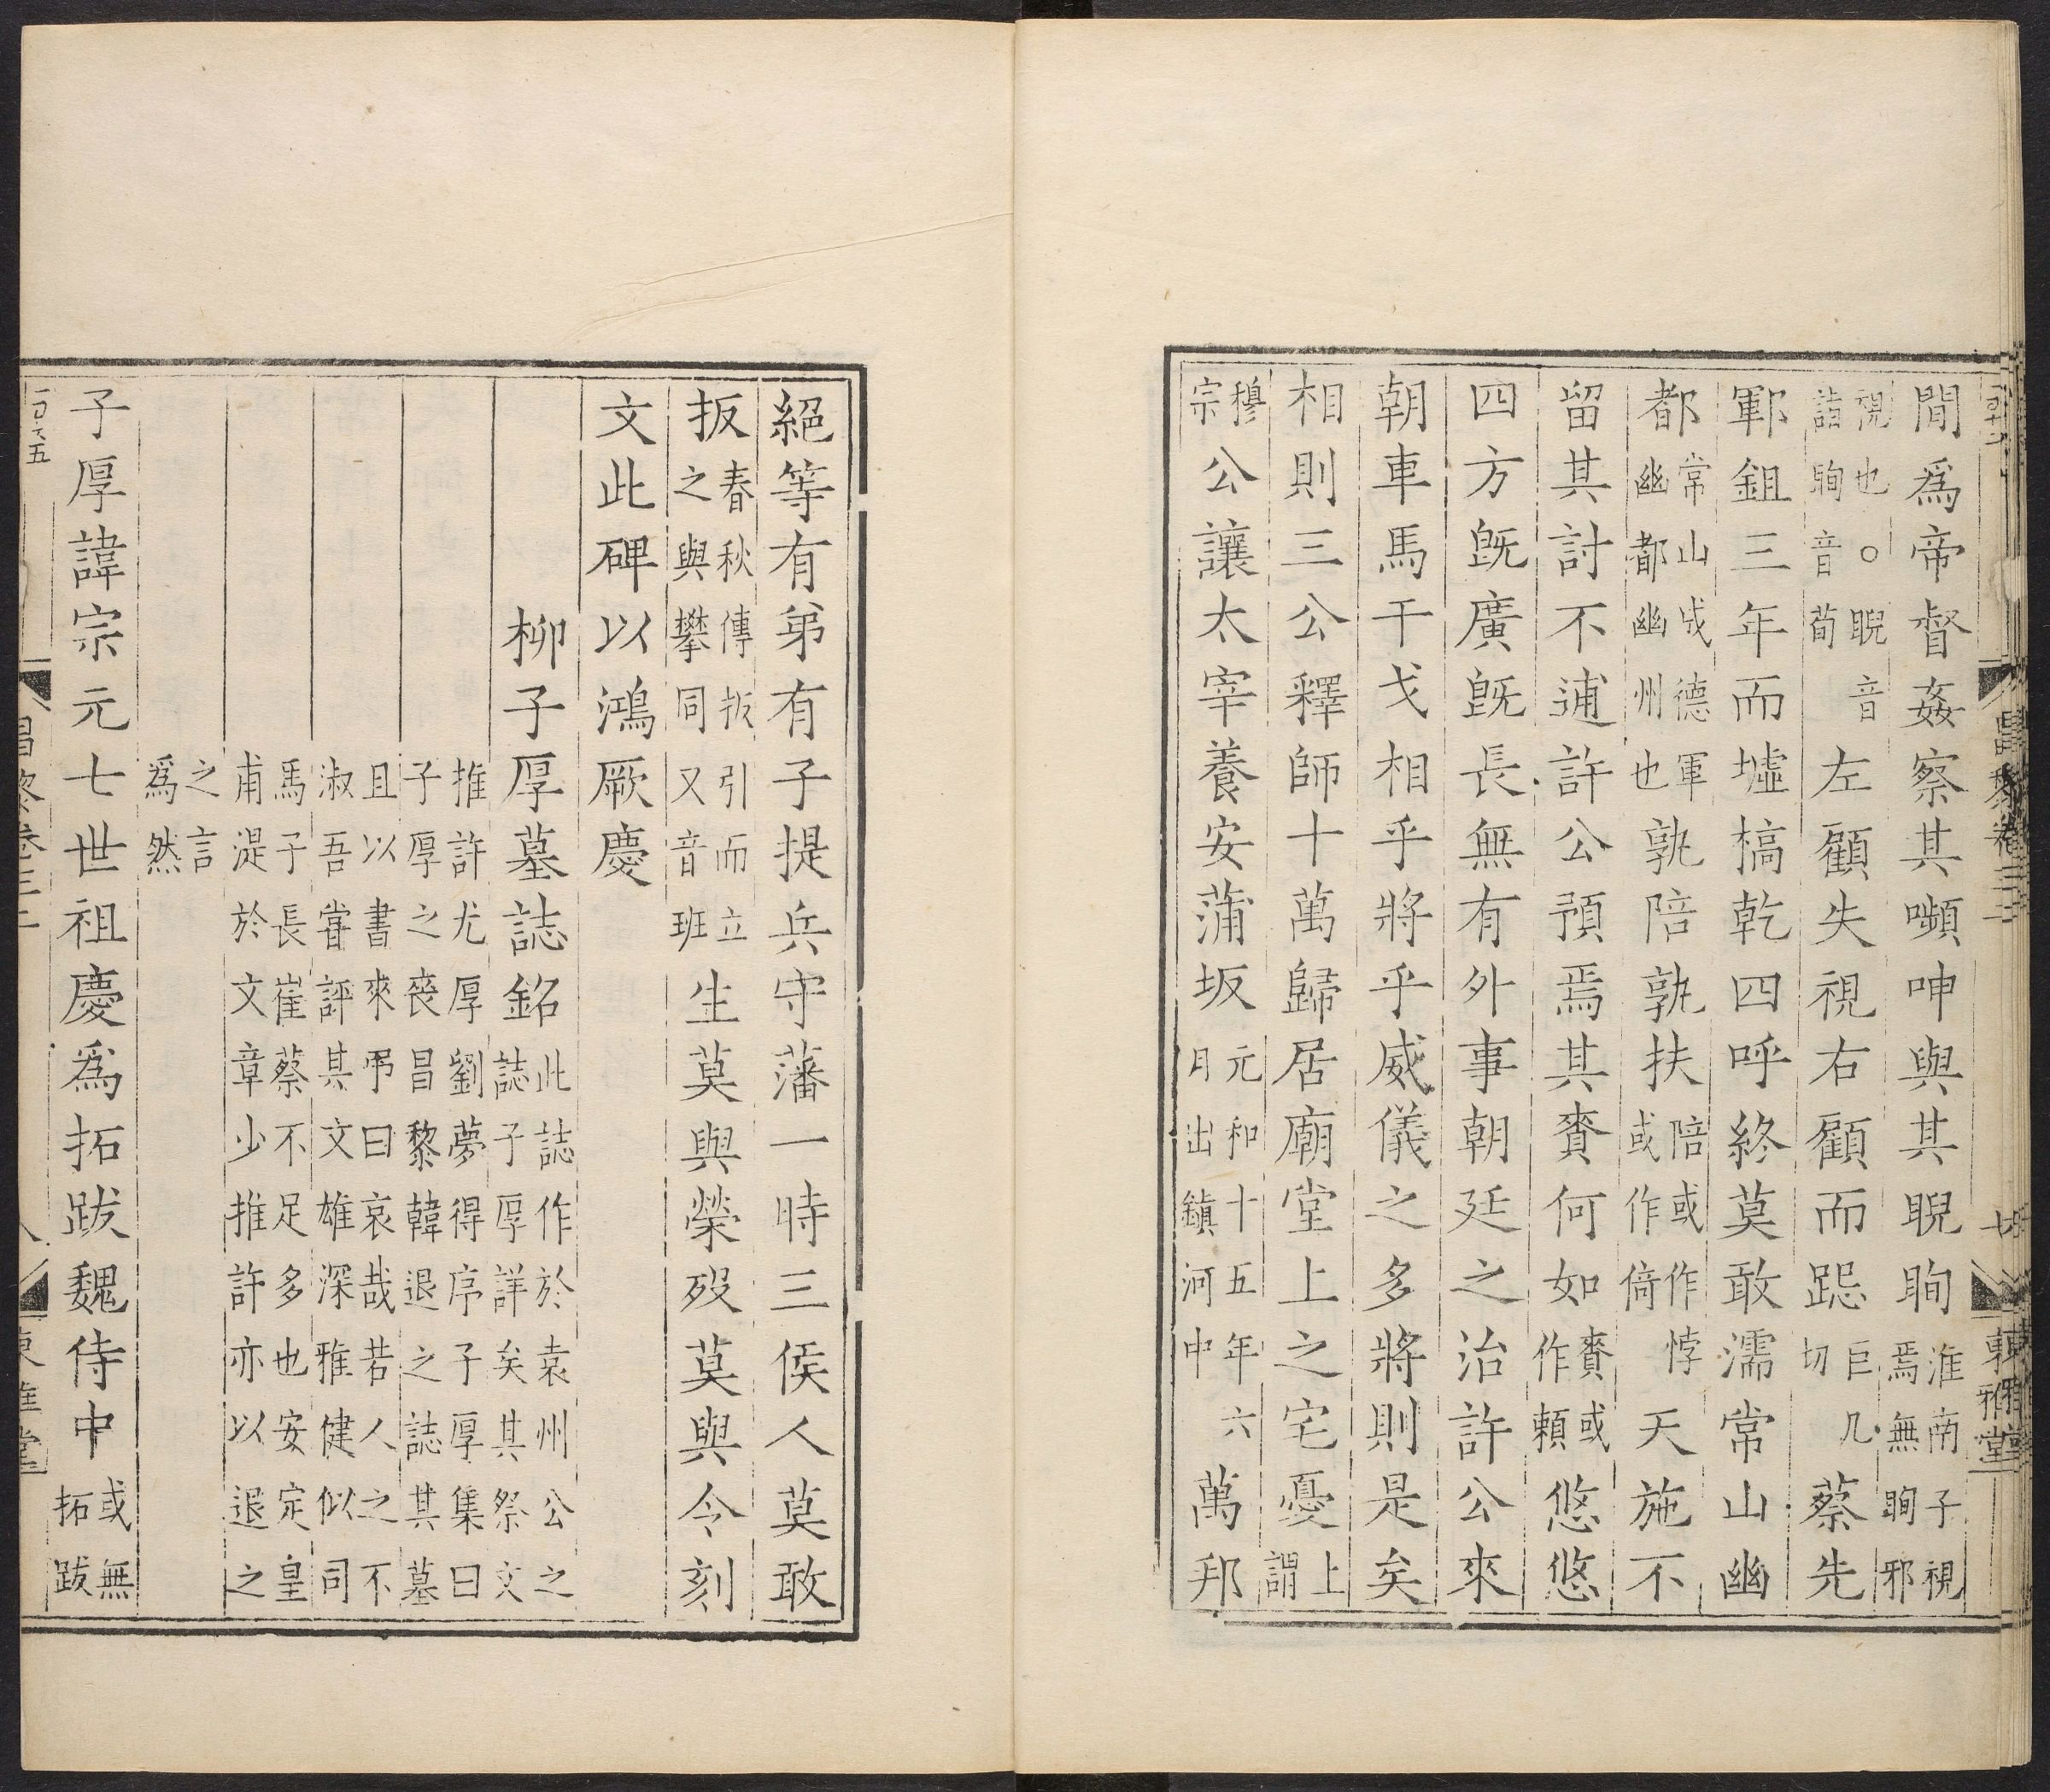 間爲帝督姦察其嚬呻與其睨眴淮南子視焉無眴邪
視也○睨音詰眴音荀左顧失視右顧而跽巨几切蔡先
鄆鉏三年而墟槁乾四呼終莫敢濡常山幽
都常山成德軍幽都幽州也孰陪孰扶陪或作悖或作倚天施不
留其討不逋許公預焉其賚何如賚或作賴悠悠
四方旣廣旣長無有外事朝廷之治許公來
朝車馬干戈相乎將乎威儀之多將則是矣
相則三公釋師十萬歸居廟堂上之宅憂上謂
穆宗公讓太宰養安蒲坂元和十五年六月出鎮河中萬邦
絕等有弟有子提兵守藩一時三侯人莫敢
扳春秋傳扳引而立之與攀同又音班生莫與榮歿莫與令刻
文此碑以鴻厥慶
柳子厚墓誌銘此誌作於袁州公之誌子厚詳矣其祭文
推許尤厚劉夢得序子厚集曰子厚之喪昌黎韓退之誌其墓
且以書來弔曰哀哉若人之不淑吾嘗評其文雄深雅健似司
馬子長崔蔡不足多也安定皇甫湜於文章少推許亦以退之
之言爲然
子厚諱宗元七世祖慶爲拓跋魏侍中或無拓跋
昌黎卷三十二 八 東雅堂